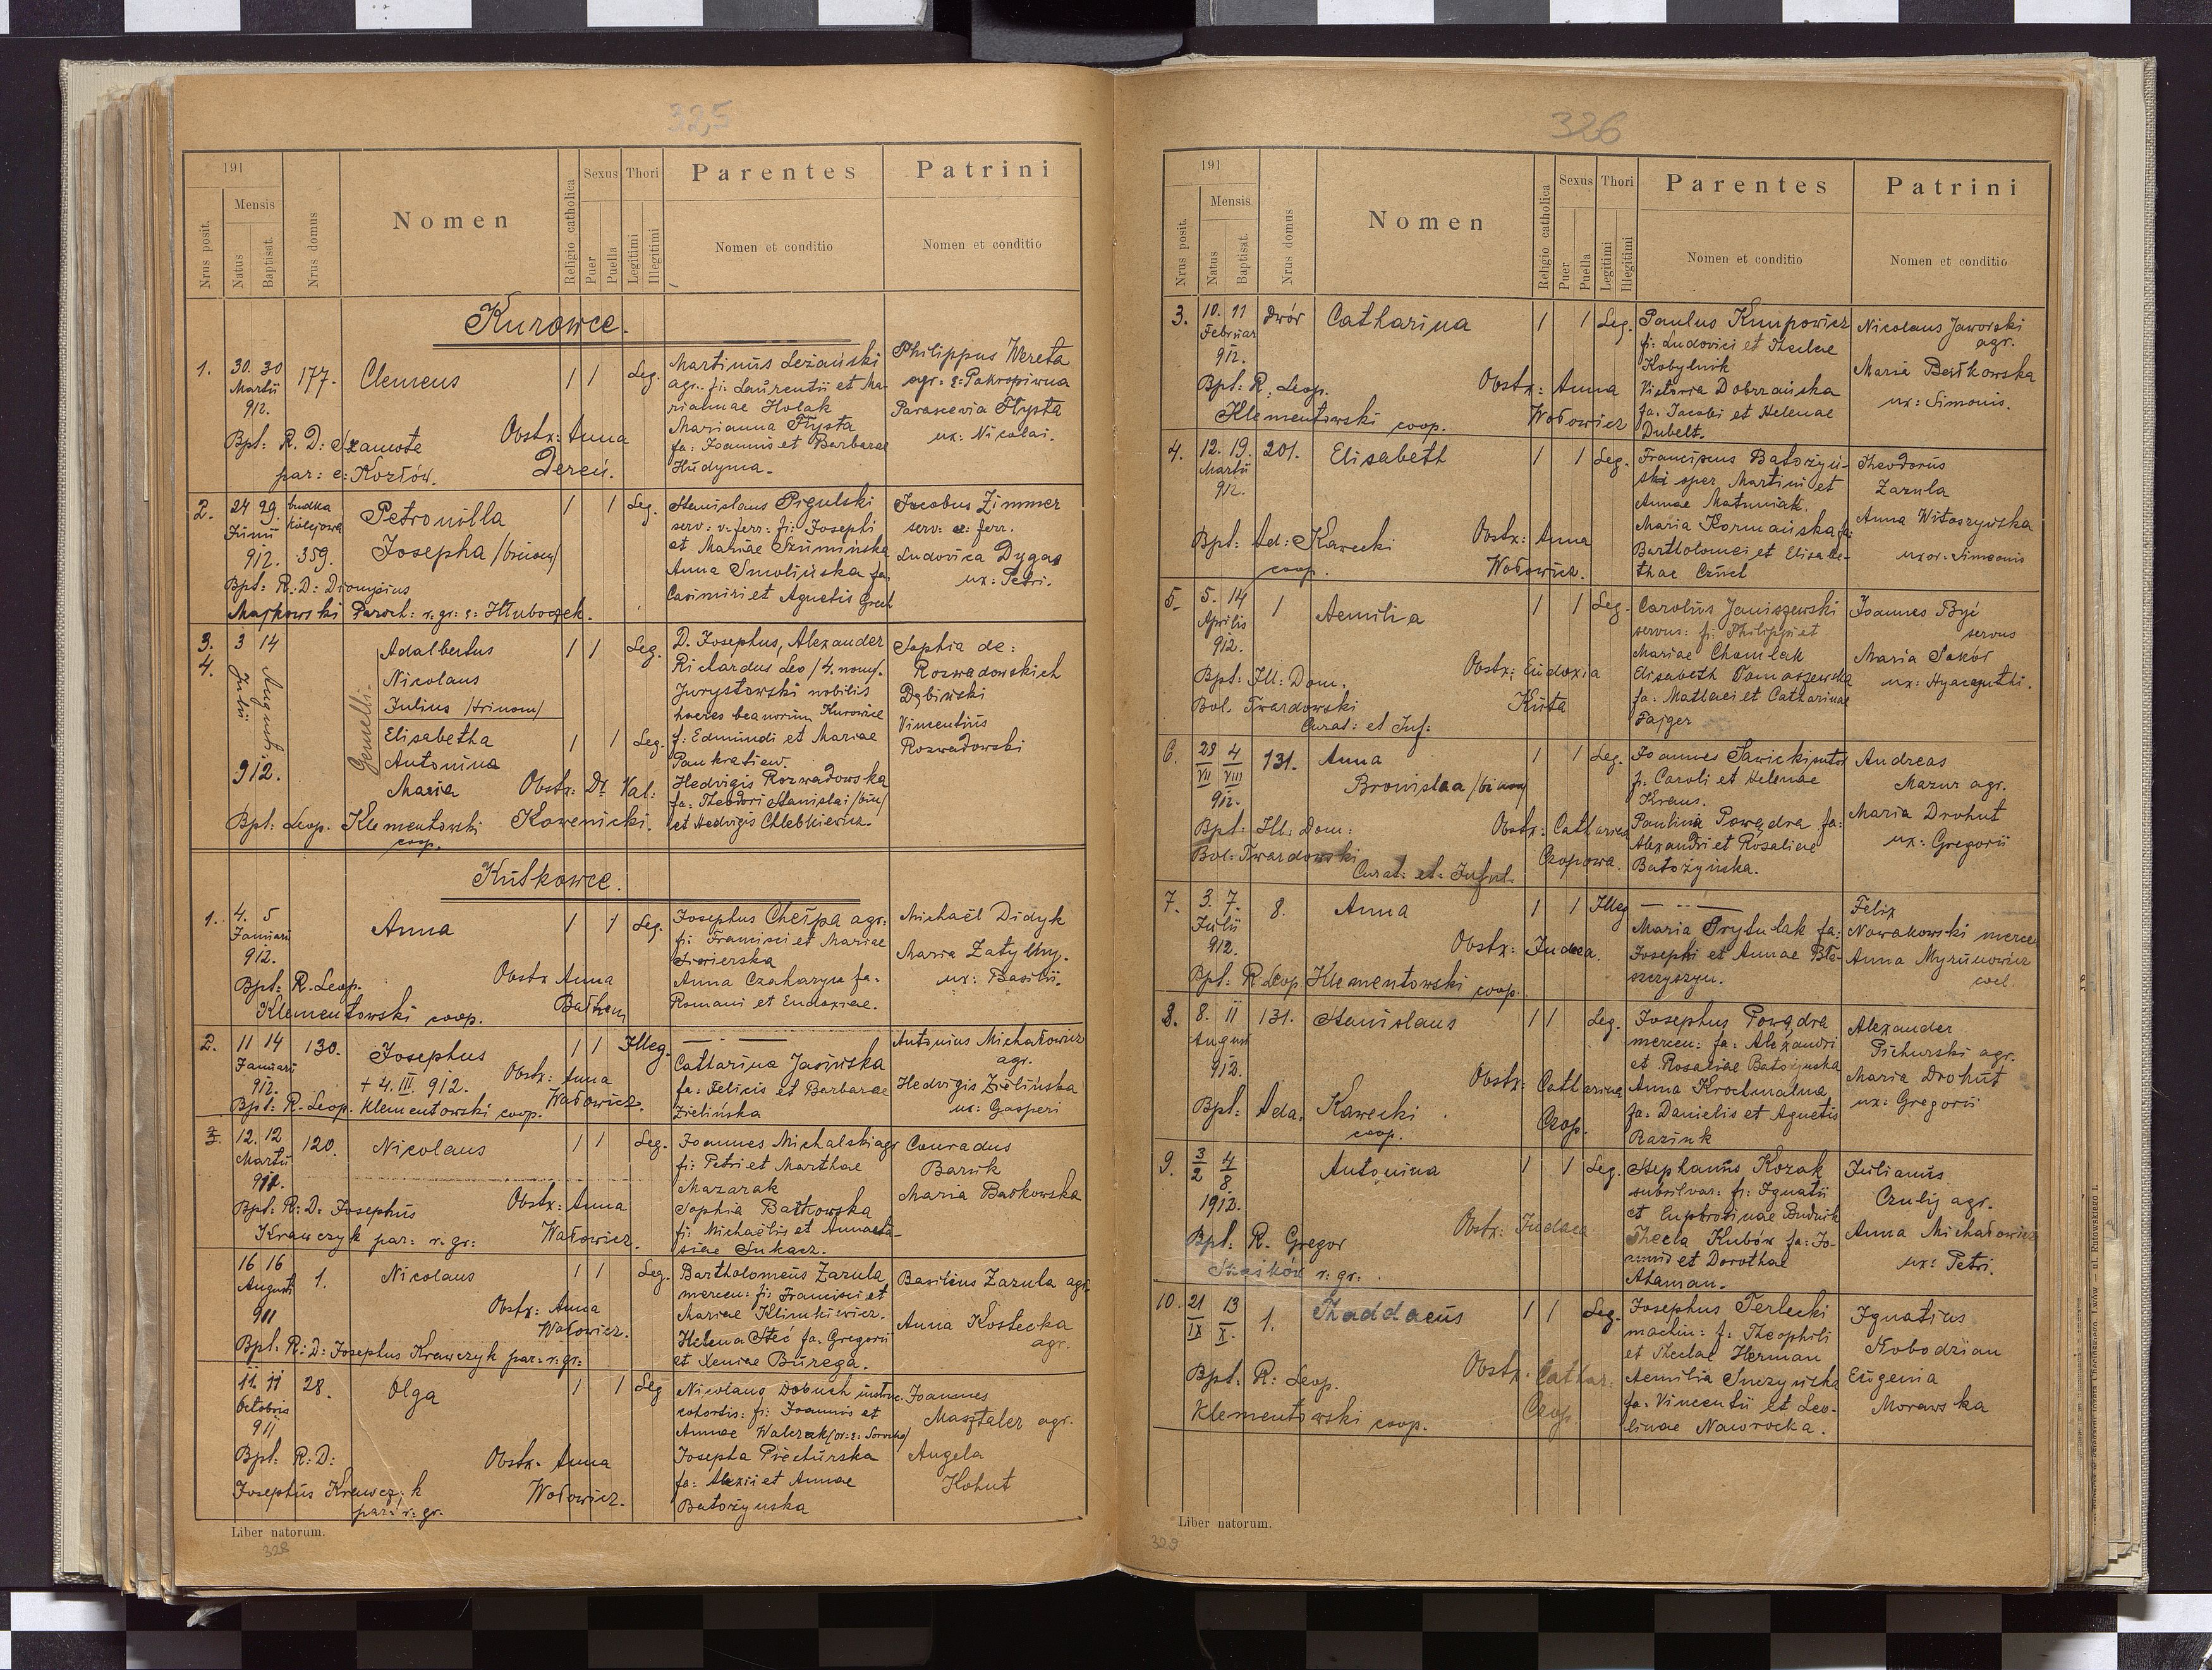 325
191
Nrus posit.
Mensis
Natus
Baptisat.
Nrus domus
Nomen
Religio catholica
Sexus
Puer
Puella
Thori
Legitimi
Illegitimi
Parentes
Nomen et conditio
Patrini
Nomen et conditio
Kurowce.
1.
30. 30
Martii
912.
177.
Clemens
1 1
Leg.
Martinus Leżański
agr. fi: Laurentii et Ma-
riannae Holak
Marianna Flysta
fa: Joannis et Barbarae
Hudyma.
Philippus Wereta
agr. e: Pokropiwna
Parascevia Flysta
ux: Nicolai.
Bpt: R. D: Szamota
par: e: Kozłów.
Obstx: Anna
Dereń.
2.
24 29.
Junii
912.
budka
kolejowa
359.
Petronilla
Josepha /binom/
1 1
Leg.
Stanislaus Pigulski
serv: v: ferr: fi: Josephi
et Mariae Szumińska
Anna Smolińska fa.
Casimiri et Agnetis Grech
Jacobus Zimmer
serv: ferr.
Ludovica Dygas
ux: Petri.
Bpt: R: D: Dionysius
Majkowski Paroch: r. gr: e: Hluboczek.
3.
4.
3 14
Julii
Augusti
912.
Gemelli.
Adalbertus
Nicolaus
Julius /trinom/
1 1
Leg.
Elisabetha
Antonina
Maria
1 1
Leg.
D. Josephus, Alexander
Richardus Leo /4. nom/.
Jurystowski nobilis
haeres beanorum Kurowice
f: Edmundi et Mariae
Pankratiew.
Hedvigis Rozwadowska
fa: Theodori Stanislai /bin/
et Hedvigis Chlebkiewicz.
Sophia de:
Rozwadowskich
Dąbiwski
Vincentius
Rozwadowski
Obstx: Dr Val:
Kowenicki.
Bpt: Leop. Klementowski
coop.
Kutkowce.
1.
4. 5
Januarii
912.
Anna
1 1
Leg.
Josephus Chełpa agr:
fi: Francisci et Mariae
Siwierska
Anna Czaharyn fa.
Romani et Eudoxiae.
Michaël Didyk
Maria Zatylny.
ux: Basilii.
Obstx Anna
Bpt: R. Leop.
Klementowski coop.
2.
11 14
Januarii
912.
130.
Josephus
+ 4. III. 912.
1 1
Illeg.
Catharina Jasińska
fa: Felicis et Barbarae
Zielińska
Antonius Michałowicz
agr.
Hedvigis Zielińska
ux: Gasperi
Obstx: Anna
Wałowicz.
Bpt: R. Leop. Klementowski coop.
3.
12. 12
Martii
912.
120.
Nicolaus
1 1
Leg.
Joannes Michalski agr
fi: Petri et Marthae
Mazarak
Sophia Batkowska
fi: Michaëlis et Annasta-
siae Łukacz.
Conradus
Baruk
Maria Baskowska
Bpt: R: D: Josephus
Krawczyk par: r. gr:
Obstx: Anna
Wałowicz.
16 16
Augusti
911
1.
Nicolaus
1 1
Leg.
Bartholomeus Zazula
mercen: fi: Francisci et
Mariae Klimkiewicz.
Helena Steć fa. Gregorii
et Xeniae Burega.
Basilius Zazula agr.
Anna Kostecka
agr.
Obstx: Anna
Wałowicz.
Bpt: R: D: Josephus Krawczyk par: r: gr:
11. 11
Octobris
911
28.
Olga
1 1
Leg
Nicolaus Dobuch
cohortis: fi: Joannis et
Annae Walczak
Josepha Piechurska
fa: Alexii et Annae
Batożynska
Joannes
Masztaler agr.
Angela
Kohut
Bpt: R: D:
Josephus Krawczyk
par: r: gr.
Obstx: Anna
Wołowicz.
Liber natorum.
328
326
191
Nrus posit.
Mensis
Natus
Baptisat.
Nrus domus
Nomen
Religio catholica
Sexus
Puer
Puella
Thori
Legitimi
Illegitimi
Parentes
Nomen et conditio
Patrini
Nomen et conditio
3.
10. 11
Februar
912.
dwór
Catharina
1 1
Leg.
Paulus Knupowicz
fi: Ludovici et Theclae
Kobylnik
Victoria Dobrzańska
fa. Jacobi et Helenae
Dubelt.
Nicolaus Jaworski
agr.
Maria Bańkowska
ux: Simonis.
Bpt: R. Leop.
Klementowski coop.
Obstx: Anna
Wołowicz
4.
12. 19.
Martii
912.
201.
Elisabeth
1 1
Leg.
Franciscus Batożyń-
ski oper Martini et
Annae Matuniak.
Maria Kormańska fa:
Bartholomei et Elisabe-
thae Czuch
Theodorus
Zazula
Anna Witoszyńska
uxor: Simeonis
Bpt: Ad: Kawecki
coop.
Obstx: Anna
Wołowicz.
5.
5. 14
Aprilis
912.
1
Aemilia
1 1
Leg.
Carolus Janiszewski
servus: fi: Philippi et
Mariae Chomlak
Elisabeth Tomaszewska
fa: Mathaei et Catharinae
Fajger
Joannes Być
servus
Maria Sokół
ux: Hyacynthi.
Bpt: Ill: Dom.
Bol. Twardowski
Curat: et Inf:
Obstx: Eudoxia
Kuta
6.
28 4
VII VIII
912.
131.
Anna
Bronislaa /binom/
1 1
Leg.
Joannes Sawicki
f. Caroli et Helenae
Kraus.
Paulina Powądra fa:
Alexandri et Rosaliae
Batożyńska.
Andreas
Mazur agr.
Maria Drohut
ux: Gregorii
Bpt: Ill: Dom:
Bol: Twardowski
Curat: et: Infut.
Obstx: Catharina
Czopowa.
7.
3. 7.
Julii
912.
8.
Anna
1 1
Illeg
Maria Prytulak fa:
Josephi et Annae Bła-
szczyszyn.
Felix
Nowakowski mercen
Anna Myrunowicz
coel.
Obstx: Judaea.
Bpt: R Leop. Klementowski coop.
8.
8. 11
August
912.
131.
Stanislaus
1 1
Leg.
Josephus Powądra
mercen: fa: Alexandri
et Rosaliae Batożynska
Anna Krochmalna
fa: Danielis et Agnetis
Razink
Alexander
Pichurski agr.
Maria Drohut
ux: Gregorii
Bpt: Ada: Kawecki
coop.
Obstx: Catharina
Czop.
9.
3 4
2 8.
1912.
Antonina
1 1
Leg.
Stephanus Kozak
subsilvar: fi: Ignatii
et Euphrosinae Budnik
Thecla Kubów fa: Jo-
annis et Dorothae
Ataman.
Julianus
Czulij agr.
Anna Michałowicz
ux: Petri.
Bpt. R. Gregor
r: gr:
Obstx: Judaea
10.
21 13
IX X.
1.
Thaddaeus
1 1
Leg.
Josephus Terlecki
machin: f: Theophili
et Theclae Herman
Aemilia Snizyńska
fa: Vincentii et Leo-
linae Nawrocka.
Ignatius
Nobodzian
Eugenia
Morawska
Bpt: R: Leop.
Klementowski coop.
Obstx. Cathar:
Czop.
Liber natorum.
329